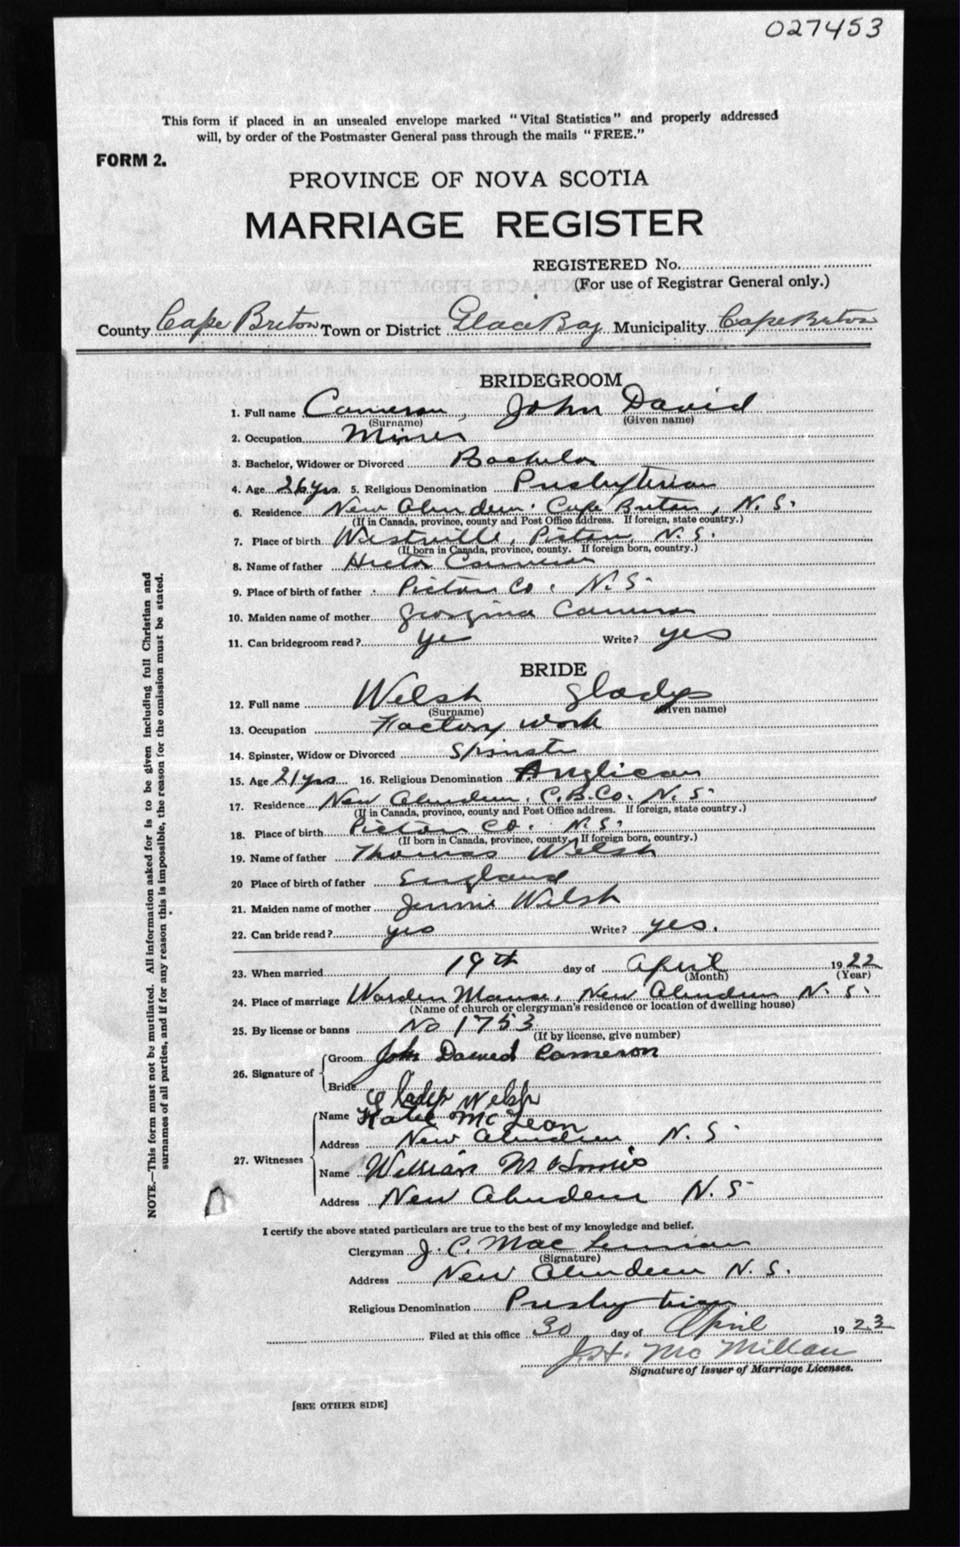 027453
This form if placed in an unsealed envelope marked "Vital Statistics" and properly addressed
will, by order of the Postmaster General pass through the mails "FREE."
FORM 2.
PROVINCE OF NOVA SCOTIA
MARRIAGE REGISTER
REGISTERED No.
(For use of Registrar General only.)
County Cape Breton Town or District Glace Bay Municipality Cape Breton
BRIDEGROOM
1. Full name Cameron, John David
(Surname) (Given name)
2. Occupation Miner
3. Bachelor, Widower or Divorced Bachelor
4. Age 26 yrs. 5. Religious Denomination Presbyterian
6. Residence New Aberdeen. Cape Breton, N. S.
(If in Canada, province, county and Post Office address. If foreign, state country.)
7. Place of birth Westville, Pictou, N. S.
(If born in Canada, province, county. If foreign born, country.)
8. Name of father Hector Cameron
9. Place of birth of father Pictou Co. N. S.
10. Maiden name of mother Georgina Cameron
11. Can bridegroom read? yes Write? yes
BRIDE
12. Full name Welsh Gladys
(Surname) (Given name)
13. Occupation Factory work
14. Spinster, Widow or Divorced Spinster
15. Age 21 yrs 16. Religious Denomination Anglican
17. Residence New Aberdeen, C.B. Co. N. S.
(If in Canada, province, county and Post Office address. If foreign, state country.)
18. Place of birth Pictou Co. N. S.
(If born in Canada, province, county. If foreign born, country.)
19. Name of father Thomas Welsh
20 Place of birth of father England
21. Maiden name of mother Jennie Welsh
22. Can bride read? yes Write? yes.
23. When married 19th day of April 1922
(Month) (Year)
24. Place of marriage Warden Manse, New Aberdeen N. S.
(Name of church or clergyman's residence or location of dwelling house)
25. By license or banns No 1753
(If by license, give number)
26. Signature of
Groom John David Cameron
Bride Gladys Welsh
27. Witnesses
Name Katie McLean
Address New Aberdeen N. S.
Name William
Address New Aberdeen N. S
I certify the above stated particulars are true to the best of my knowledge and belief.
Clergyman J. C. MacLennan
(Signature)
Address New Aberdeen N. S.
Religious Denomination Presbyterian
Filed at this office 30 day of April 1923
J. H. McMillan
Signature of Issuer of Marriage Licenses.
[SEE OTHER SIDE]
NOTE.—This form must not be mutilated. All information asked for is to be given including full Christian and
surnames of all parties, and if for any reason this is impossible, the reason for the omission must be stated.